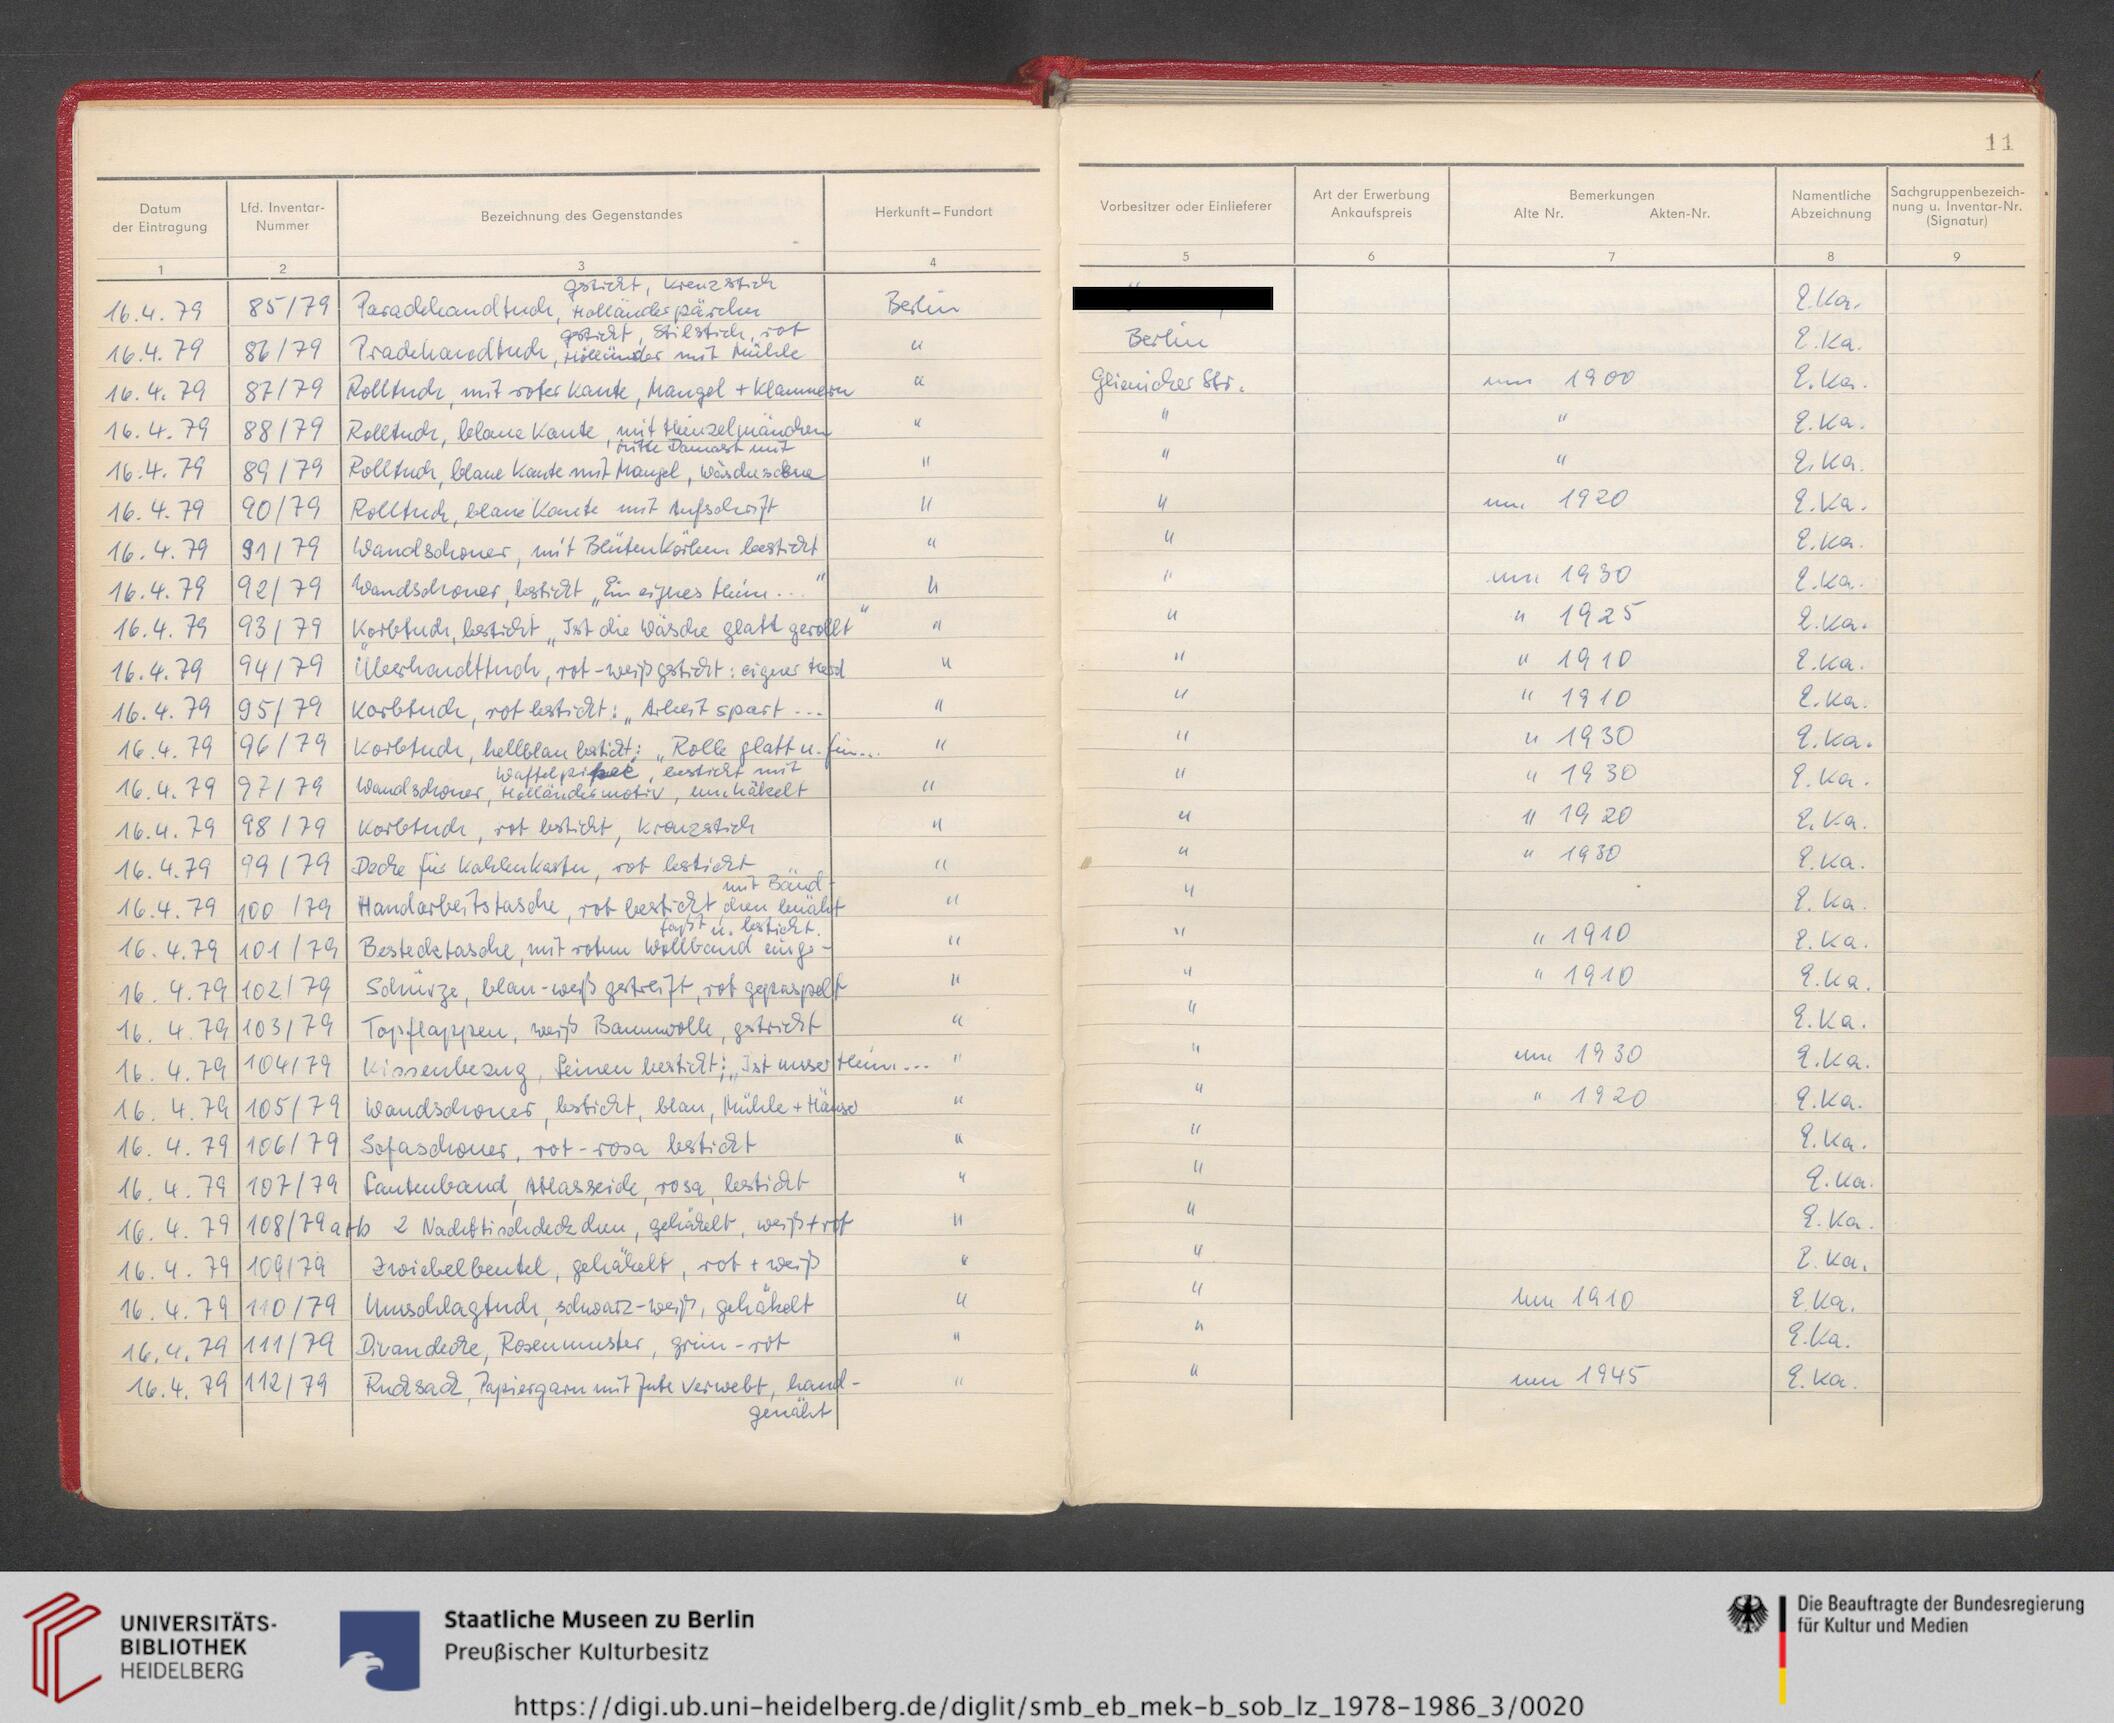 11
Datum der Eintragung | Lfd. Inventar-Nummer | Bezeichnung des Gegenstandes | Herkunft – Fundort | Vorbesitzer oder Einlieferer | Art der Erwerbung Ankaufspreis | Bemerkungen Alte Nr. Akten-Nr. | Namentliche Abzeichnung | Sachgruppenbezeichnung u. Inventar-Nr. (Signatur)
1 2 3 4 5 6 7 8 9
gestickt, Kreuzstich
16.4.79 85/79 Paradehandtuch, Holländerpärchen Berlin E.Ka.
gestickt, Stilstich, rot
16.4.79 86/79 Pradehandtuch, Holländer mit Mühle " Berlin E.Ka.
16.4.79 87/79 Rolltuch, mit roter Kante, Mangel + Klammern " Glienicker Str. um 1900 E.Ka.
16.4.79 88/79 Rolltuch, blaue Kante, mit Heinzelmänchen " " " E.Ka.
mitte Damast mit
16.4.79 89/79 Rolltuch, blaue Kante mit Mangel, " " " E.Ka.
16.4.79 90/79 Rolltuch, blaue Kante mit Aufschrift " " um 1920 E.Ka.
16.4.79 91/79 Wandschoner, mit Blütenkörben bestickt " " E.Ka.
16.4.79 92/79 Wandschoner, bestickt „Ein eignes Heim..." " " um 1930 E.Ka.
16.4.79 93/79 Korbtuch, bestickt „Ist die Wäsche glatt gerollt" " " " 1925 E.Ka.
16.4.79 94/79 Überhandttuch, rot-weiß gestickt: eigner Herd " " " 1910 E.Ka.
16.4.79 95/79 Korbtuch, rot bestickt: „Arbeit spart ... " " " 1910 E.Ka.
16.4.79 96/79 Korbtuch, hellblau bestickt: „Rolle glatt u. fein... " " " 1930 E.Ka.
Waffelpikee, bestickt mit
16.4.79 97/79 Wandschoner, Holländermotiv, umhäkelt " " " 1930 E.Ka.
16.4.79 98/79 Korbtuch, rot bestickt, Kreuzstich " " " 1920 E.Ka.
16.4.79 99/79 Decke für Kohlenkasten, rot bestickt " " " 1930 E.Ka.
mit Bänd-
16.4.79 100/79 Handarbeitstasche, rot bestickt chen benäht " " E.Ka.
faßt u. bestickt.
16.4.79 101/79 Bestecktasche, mit rotem Wollband einge- " " " 1910 E.Ka.
16.4.79 102/79 Schürze, blau-weiß gestreift, rot gepaspelt " " " 1910 E.Ka.
16.4.79 103/79 Topflappen, weiß Baumwolle, gestrickt " " E.Ka.
16.4.79 104/79 Kissenbezug, Leinen bestickt: „Ist unser Heim... " " um 1930 E.Ka.
16.4.79 105/79 Wandschoner, bestickt, blau, Mühle + Häuser " " " 1920 E.Ka.
16.4.79 106/79 Sofaschoner, rot-rosa bestickt " " E.Ka.
16.4.79 107/79 Lautenband, Atlasseide, rosa, bestickt " " E.Ka.
16.4.79 108/79 a+b 2 Nachttischdeckchen, gehäkelt, weiß+rot " " E.Ka.
16.4.79 109/79 Zwiebelbeutel, gehäkelt, rot + weiß " " E.Ka.
16.4.79 110/79 Umschlagtuch, schwarz-weiß, gehäkelt " " um 1910 E.Ka.
16.4.79 111/79 Divandecke, Rosenmuster, grün-rot " " E.Ka.
16.4.79 112/79 Rucksack, Papiergarn mit Jute verwebt, hand- " " um 1945 E.Ka.
genäht
UNIVERSITÄTS-
BIBLIOTHEK
HEIDELBERG
Staatliche Museen zu Berlin
Preußischer Kulturbesitz
Die Beauftragte der Bundesregierung
für Kultur und Medien
https://digi.ub.uni-heidelberg.de/diglit/smb_eb_mek-b_sob_lz_1978-1986_3/0020